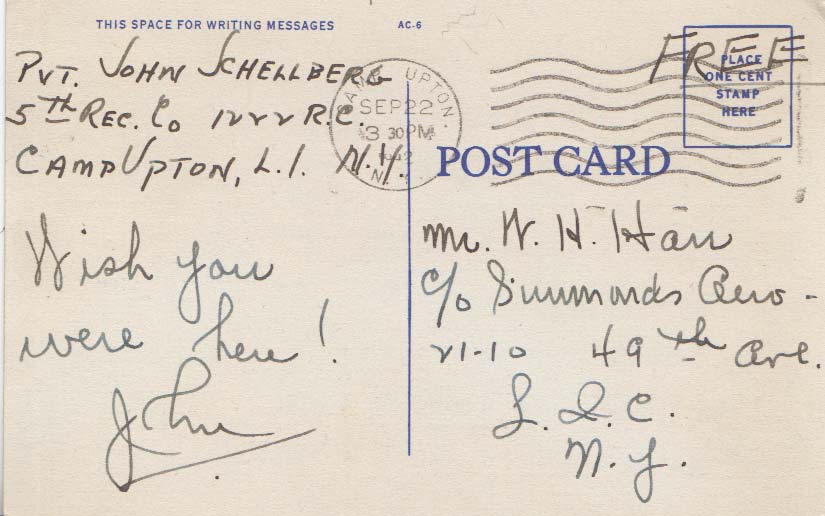 THIS SPACE FOR WRITING MESSAGES
AC-6
PVT. JOHN SCHELLBERG
5TH REC. Co 1222 R.C.
CAMP UPTON, L.I. N.Y.
Wish you
were here!
John
CAMP UPTON.
SEP 22
3 30 PM
1942
N.Y.
FREE
PLACE
ONE CENT
STAMP
HERE
POST CARD
Mr. W. H.
c/o Simmonds Aero -
21-10 49th Ave.
L. I. C.
N. Y.